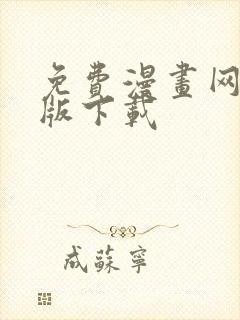 免費漫畫网
版下載
成蘇寧